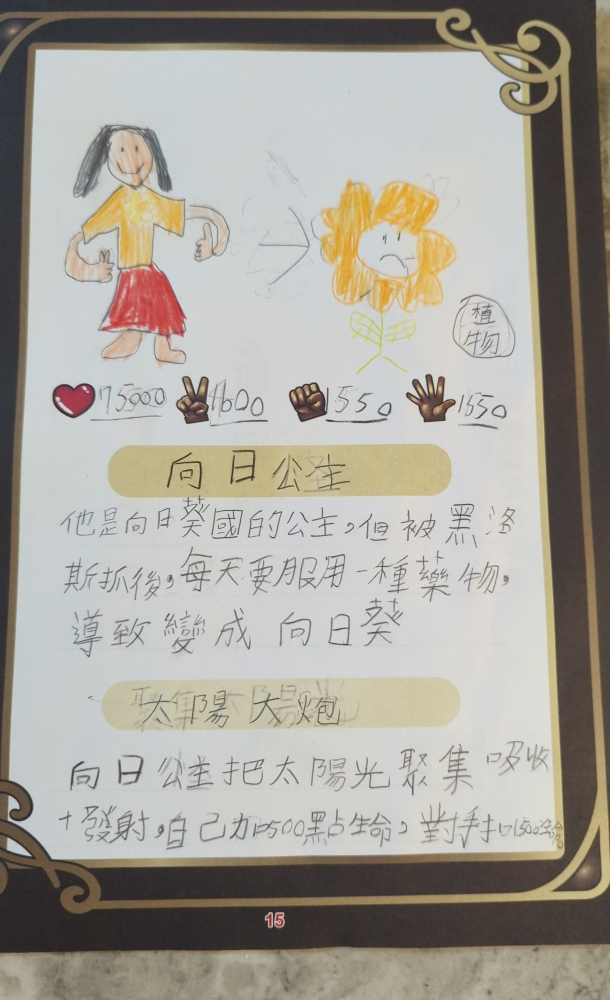 植
物
75000 1600 1550 1550
向日公主
他是向日葵國的公主,但被黑洛
斯抓後,每天要服用一種藥物,
導致變成向日葵
太陽大炮
向日公主把太陽光聚集吸收
+發射,自己加2500點生命,對手扣1500
15